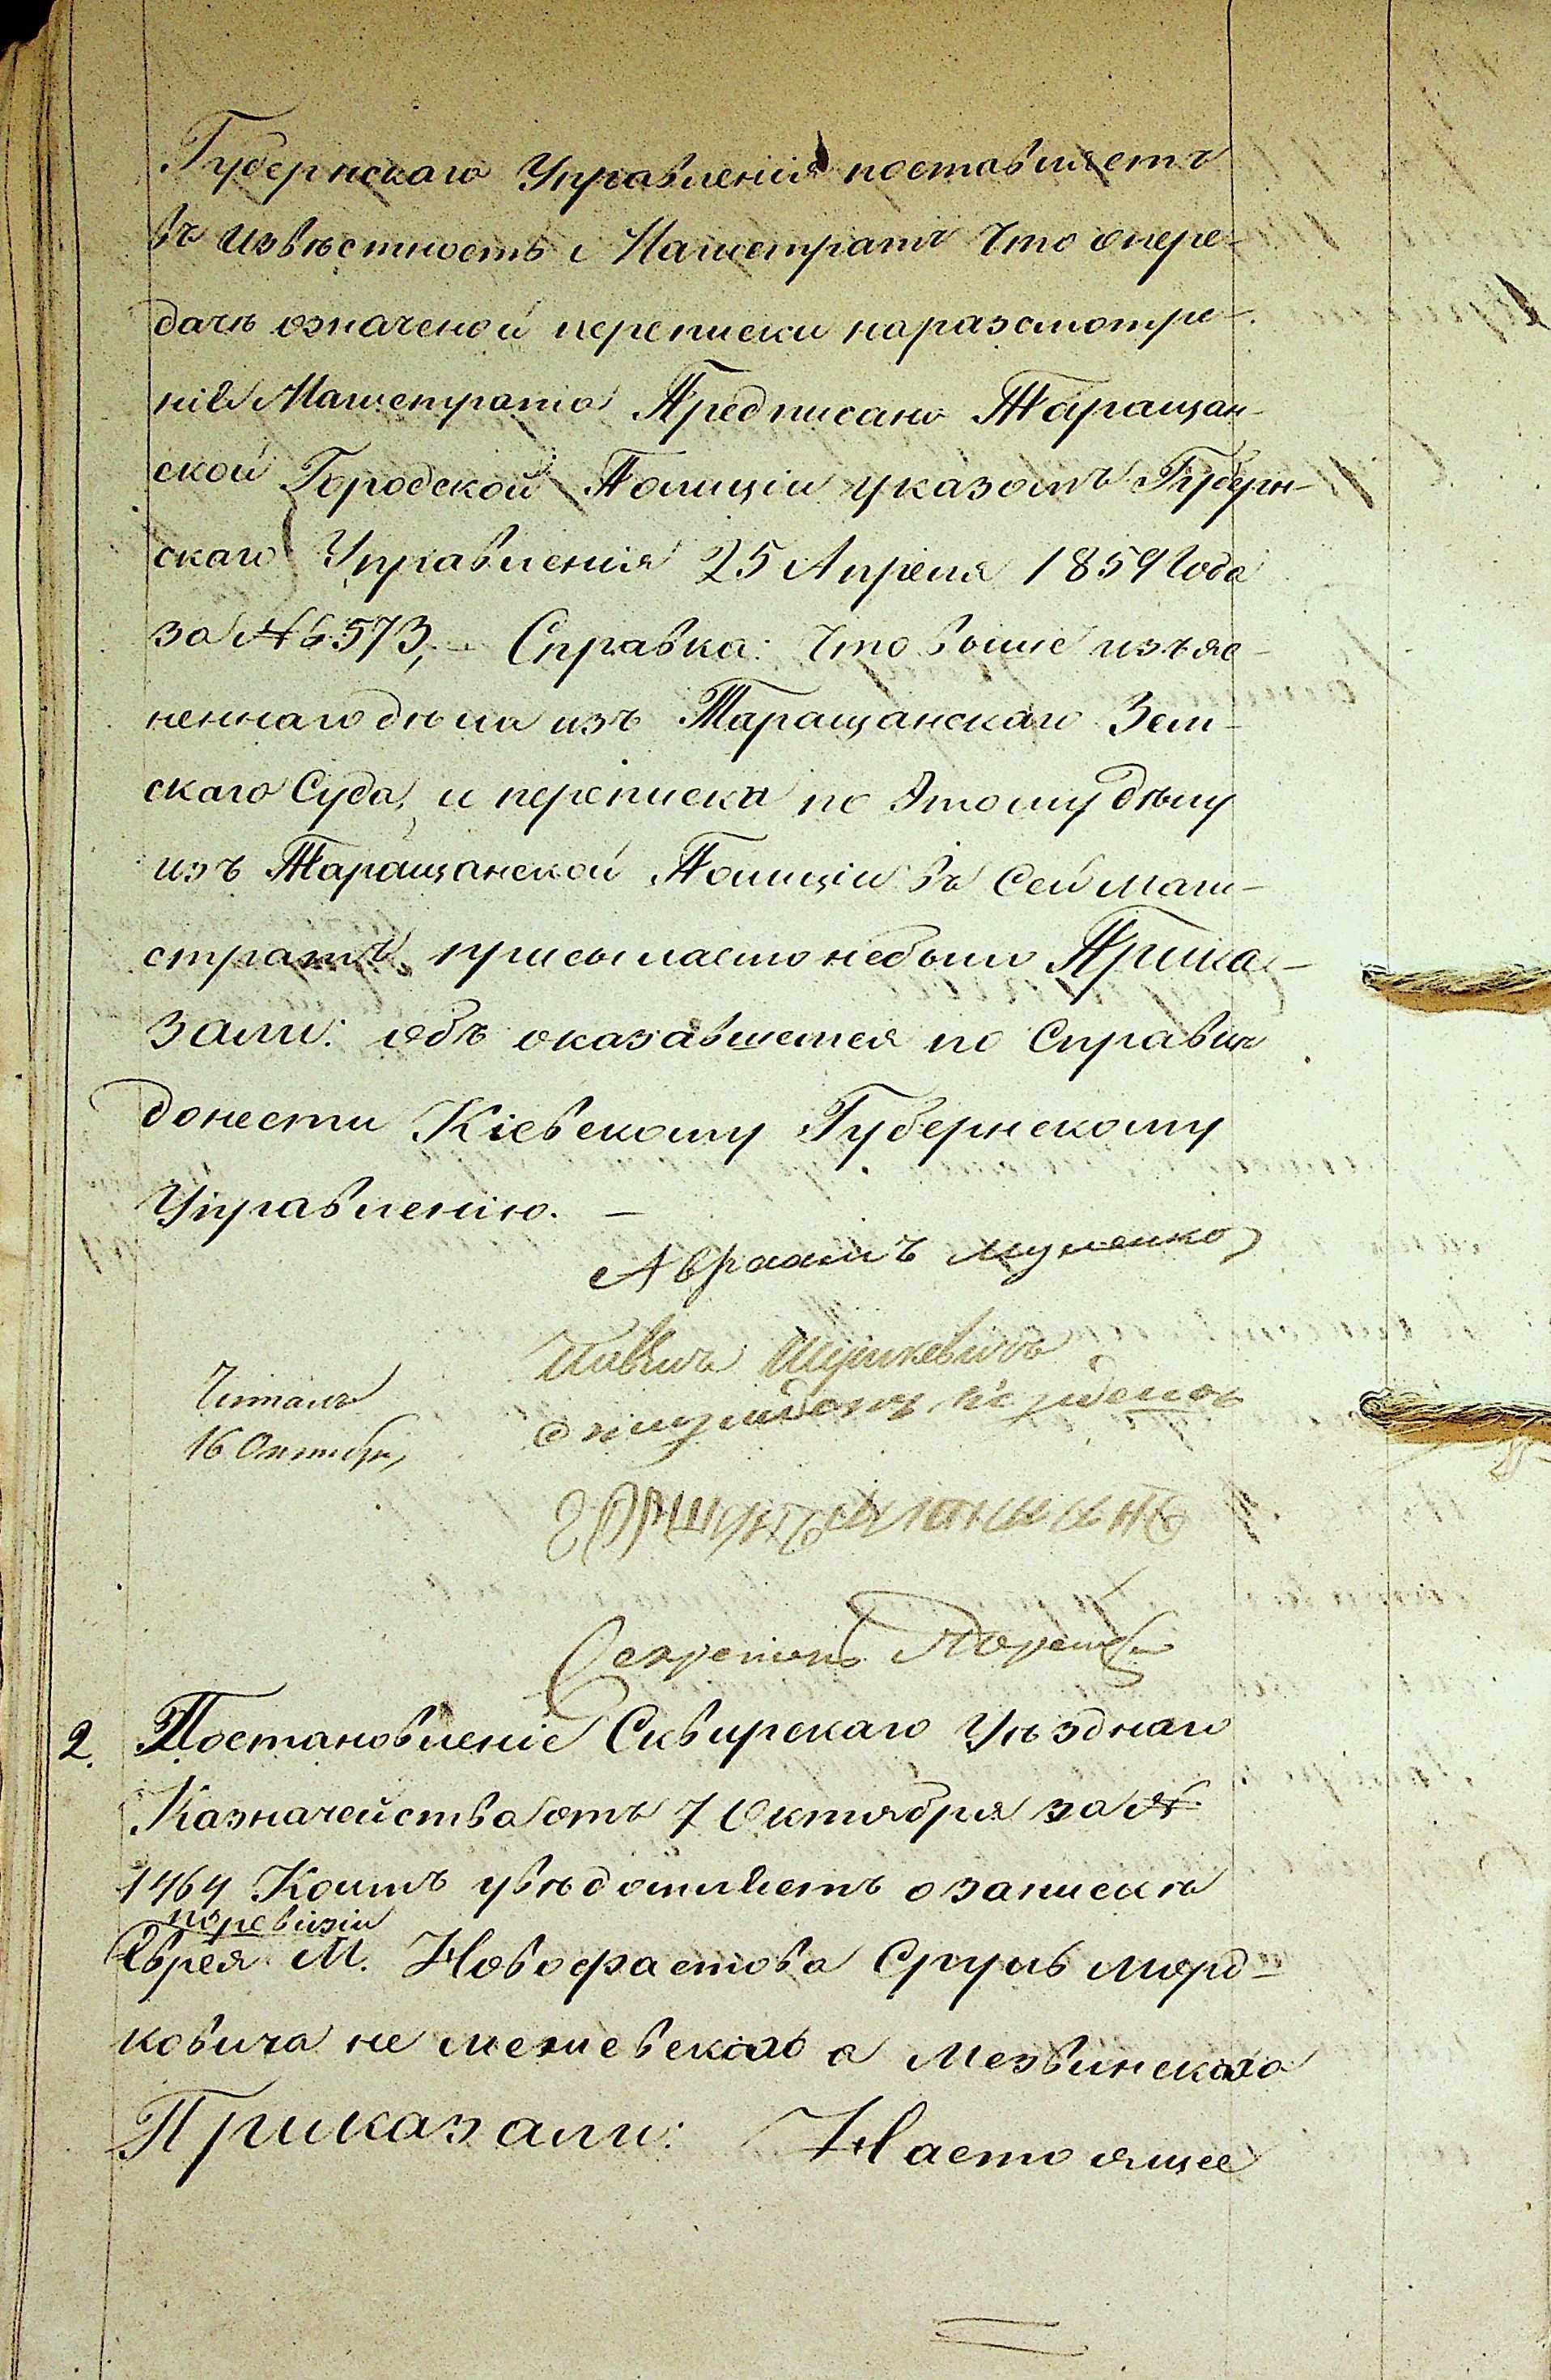 Губернскаго Управленія поставляетъ
въ извѣстность Магистратъ что опере-
дачѣ означеной переписки наразсмотре-
ніе Магистрата Предписано Таращан-
ской Городской Полиціи указомъ Губерн-
скаго Управленія 25 Апреля 1859 Года
за № 6573, – Справка: Что выше изъяс-
неннаго дѣла изъ Таращанскаго Зем-
скаго Суда, и переписка по Этому дѣлу
изъ Таращанской Полиціи въ Сей маги-
стратъ присылаемо небыло Прика-
зали: объ оказавшемся по Справки
донести Кіевскому Губернскому
Управленію. –
Авраамъ
Читалъ
16 Октября
Секретарь
2. Постановленіе Сквирскаго Уѣзднаго
Казначейства отъ 7 Октября за №
1464 Коимъ увѣдомляетъ о запискѣ
поревизіи
Еврея М. Новофастова Сруль морд-
ковича не а Мезвинскаго
Приказали: Настоящее